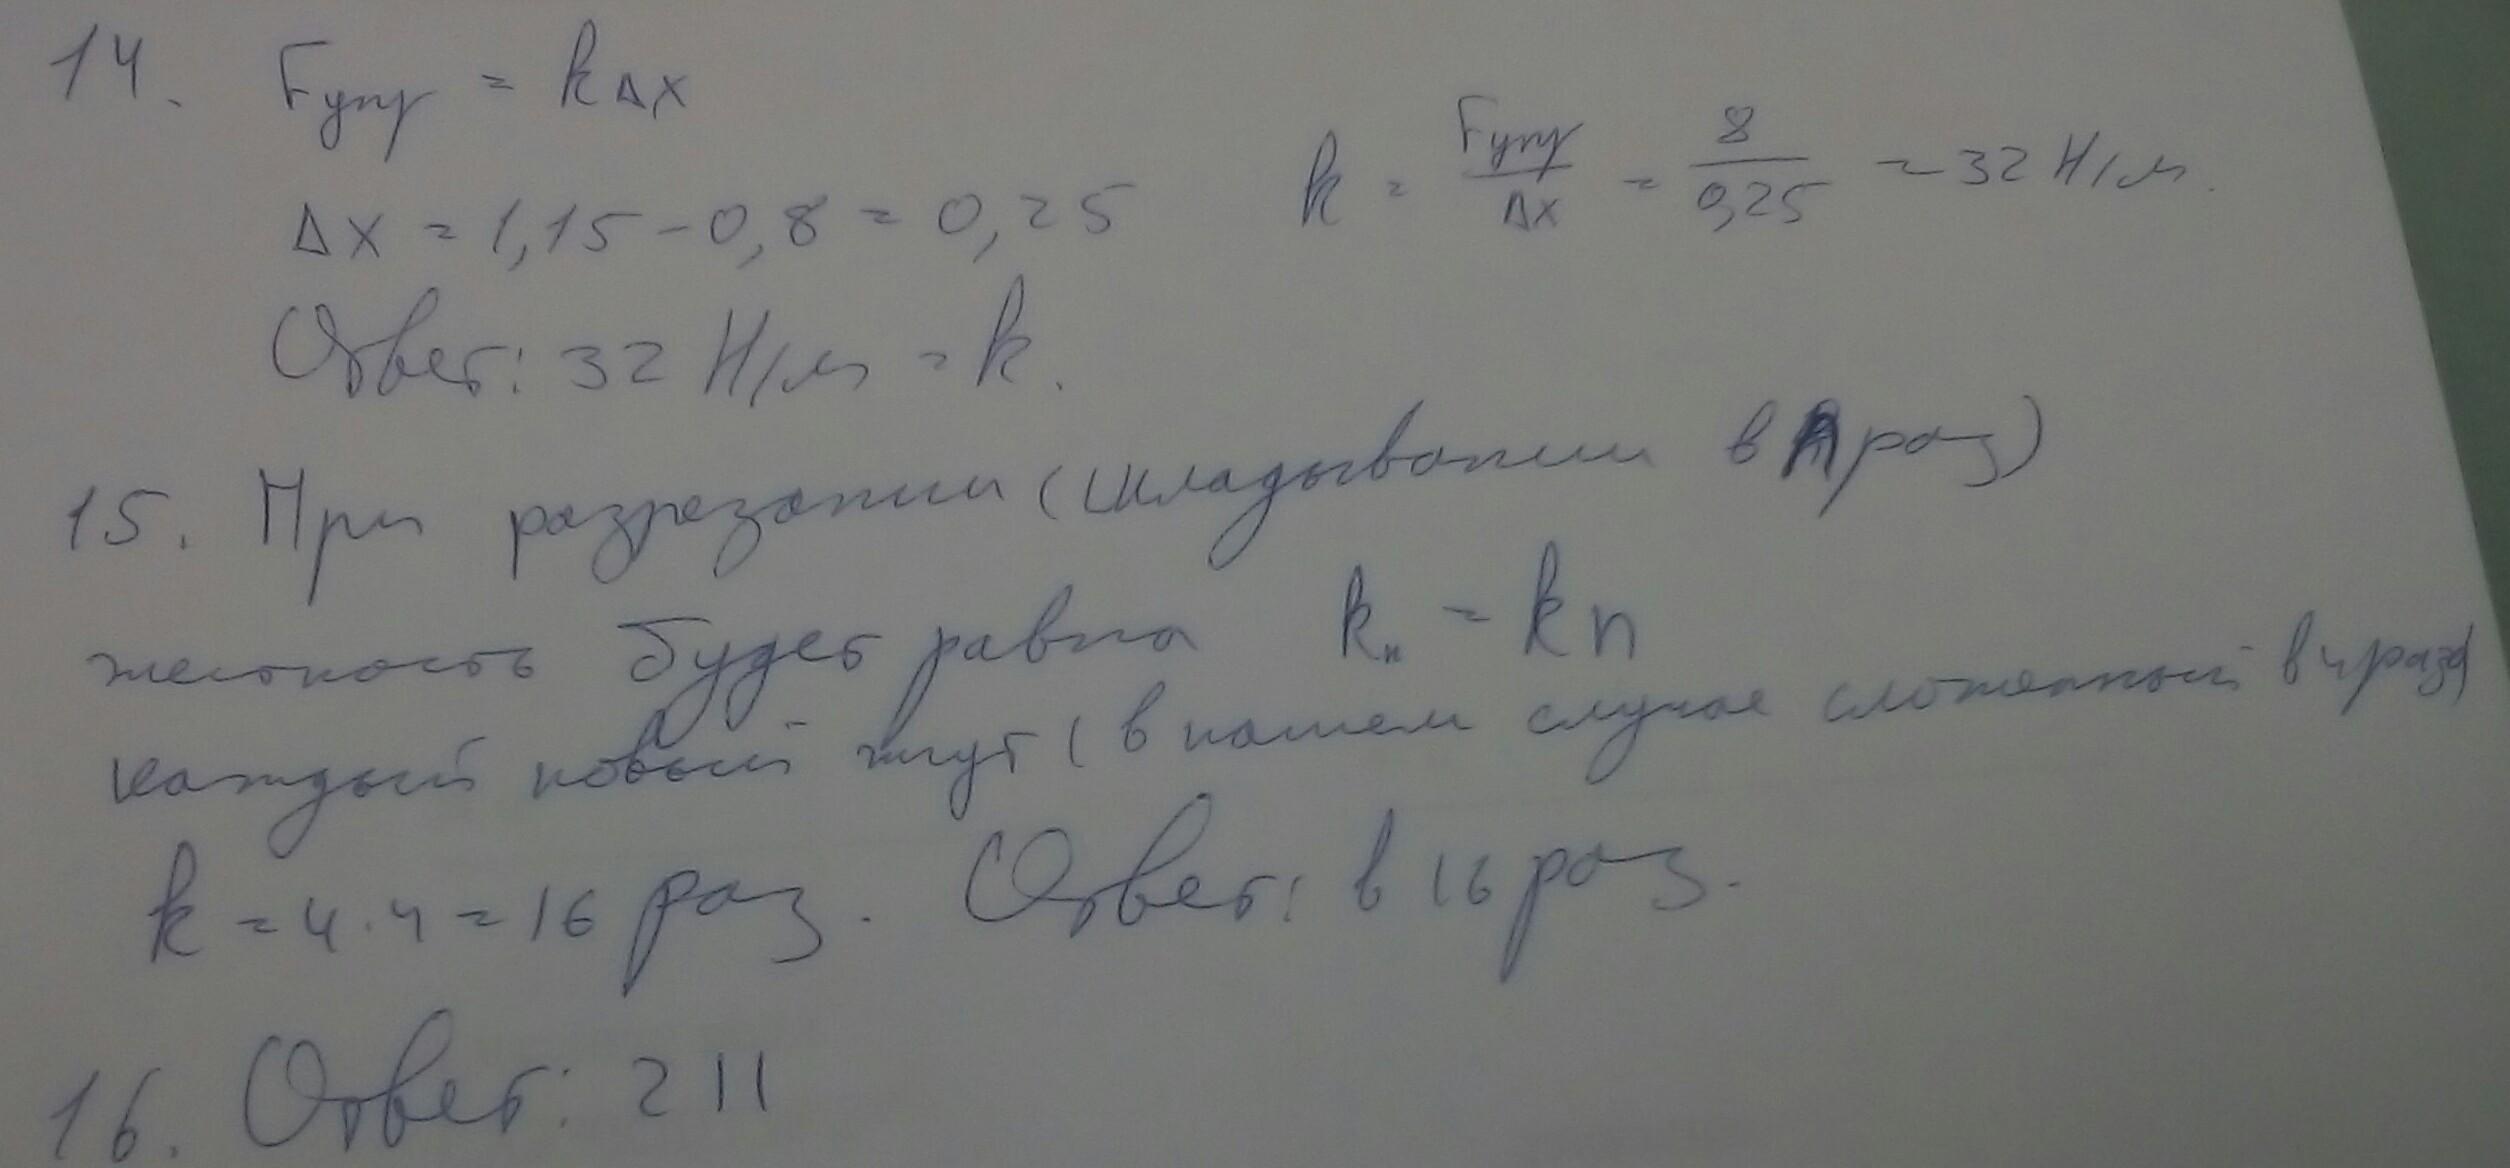 14. Fупр = kΔx
Δx = 1,15 - 0,8 = 0,25
k = Fупр/Δx = 8/0,25 = 32 Н/м.
Ответ: 32 Н/м = k.
15. При разрезании (складывании в n раз)
жесткость будет равна kₙ = kn
каждый новый жгут (в нашем случае сложенный в 4 раза)
k = 4·4 = 16 раз. Ответ: в 16 раз.
16. Ответ: 211